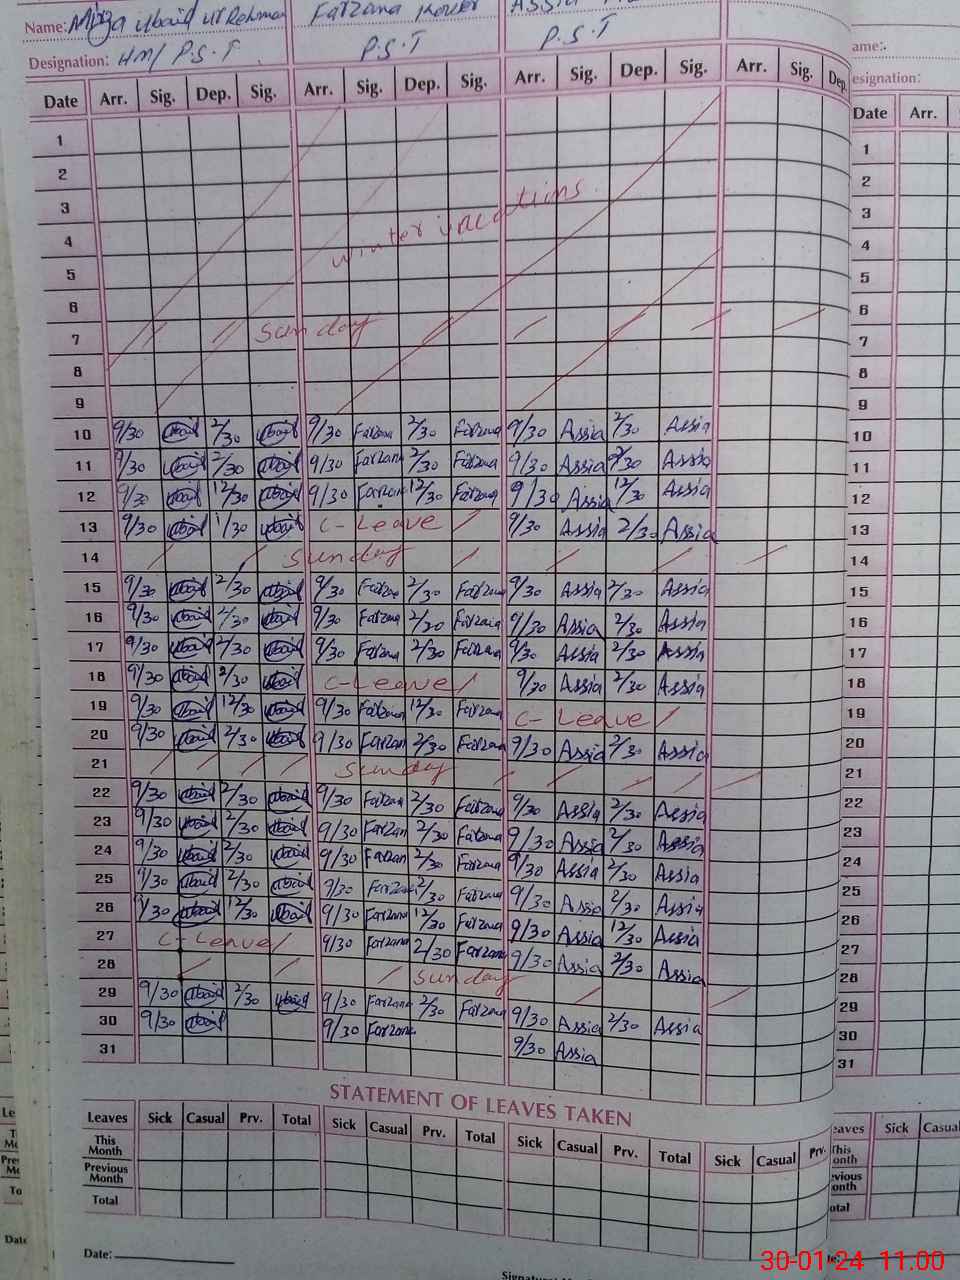 Name: Mirza Ubaid ur Rehman Farzana Kouser Assia
Designation: HM/ P.S.T P.S.T P.S.T
ame:
esignation:
Date Arr. Sig. Dep. Sig. Arr. Sig. Dep. Sig. Arr. Sig. Dep. Sig. Arr. Sig. Dep. Date Arr.
1 1
2 2
3 winter vacations 3
4 4
5 5
6 6
7 Sunday 7
8 8
9 9
10 9/30 Ubaid 2/30 Ubaid 9/30 Farzana 2/30 Farzana 9/30 Assia 2/30 Assia 10
11 9/30 Ubaid 2/30 Ubaid 9/30 Farzana 2/30 Farzana 9/30 Assia 2/30 Assia 11
12 9/30 Ubaid 12/30 Ubaid 9/30 Farzana 12/30 Farzana 9/30 Assia 12/30 Assia 12
13 9/30 Ubaid 1/30 Ubaid C-Leave 9/30 Assia 2/30 Assia 13
14 Sunday 14
15 9/30 Ubaid 2/30 Ubaid 9/30 Farzana 2/30 Farzana 9/30 Assia 2/30 Assia 15
16 9/30 Ubaid 2/30 Ubaid 9/30 Farzana 2/30 Farzana 9/30 Assia 2/30 Assia 16
17 9/30 Ubaid 2/30 Ubaid 9/30 Farzana 2/30 Farzana 9/30 Assia 2/30 Assia 17
18 9/30 Ubaid 2/30 Ubaid C-Leave 9/30 Assia 2/30 Assia 18
19 9/30 Ubaid 12/30 Ubaid 9/30 Farzana 12/30 Farzana C-Leave 19
20 9/30 Ubaid 2/30 Ubaid 9/30 Farzan 2/30 Farzana 9/30 Assia 2/30 Assia 20
21 Sunday 21
22 9/30 Ubaid 2/30 Ubaid 9/30 Farzana 2/30 Farzana 9/30 Assia 2/30 Assia 22
23 9/30 Ubaid 2/30 Ubaid 9/30 Farzan 2/30 Farzana 9/30 Assia 2/30 Assia 23
24 9/30 Ubaid 2/30 Ubaid 9/30 Farzan 2/30 Farzana 9/30 Assia 2/30 Assia 24
25 9/30 Ubaid 2/30 Ubaid 9/30 Farzana 2/30 Farzana 9/30 Assia 2/30 Assia 25
26 9/30 Ubaid 12/30 Ubaid 9/30 Farzana 12/30 Farzana 9/30 Assia 12/30 Assia 26
27 C-Leave 9/30 Farzana 2/30 Farzana 9/30 Assia 2/30 Assia 27
28 Sunday 28
29 9/30 Ubaid 2/30 Ubaid 9/30 Farzana 2/30 Farzana 9/30 Assia 2/30 Assia 29
30 9/30 Ubaid 9/30 Farzana 9/30 Assia 30
31 31
STATEMENT OF LEAVES TAKEN
Leaves Sick Casual Prv. Total Sick Casual Prv. Total Sick Casual Prv. Total Sick Casual Prv. eaves Sick Casual
This Month
Previous Month
Total
Date:
30-01-24 11.00